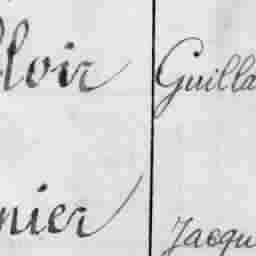 lloir Guilla
nier Jacqu